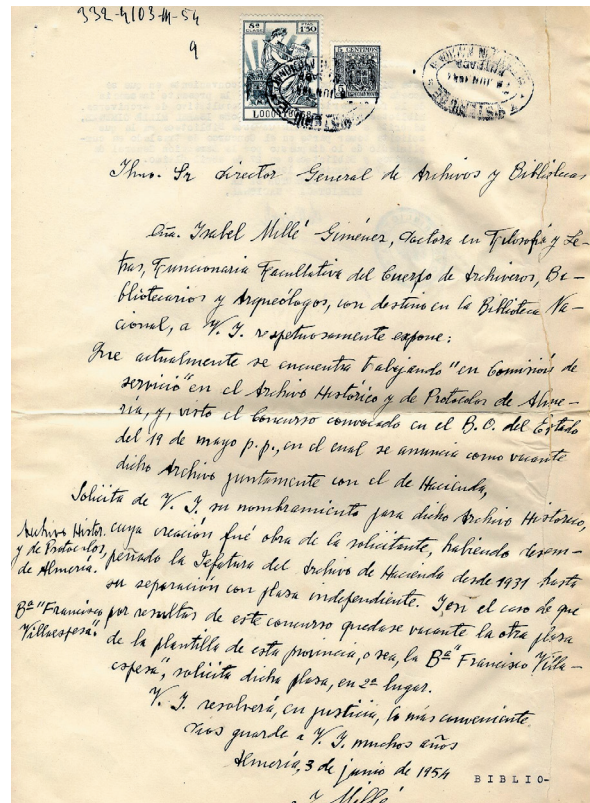 332-4103-M-54
9
5ª CLASE
1'50
5 CENTIMOS
Ilmo. Sr Director General de Archivos y Bibliotecas
Dña. Isabel Millé Giménez, Doctora en Filosofía y Le-
tras, Funcionaria Facultativa del Cuerpo de Archiveros, Bi-
bliotecarios y Arqueólogos, con destino en la Biblioteca Na-
cional, a V. I. respetuosamente expone:
Que actualmente se encuentra trabajando "en Comisión de
servicio" en el Archivo Histórico y de Protocolos de Alme-
ría, y, visto el Concurso convocado en el B.O. del Estado
del 19 de mayo p.p., en el cual se anuncia como vacante
dicho Archivo juntamente con el de Hacienda,
Solicita de V. I. su nombramiento para dicho Archivo Histórico,
cuya creación fué obra de la solicitante, habiendo desem-
peñado la Jefatura del Archivo de Hacienda desde 1931 hasta
su separación con plaza independiente. Y en el caso de que
por resultas de este concurso quedase vacante la otra plaza
de la plantilla de esta provincia, o sea, la Bª "Francisco Villa-
espesa", solicita dicha plaza, en 2º lugar.
Archivo Histór.
y de Protocolos,
de Almería.
Bª "Francisco
Villaespesa".
V. I. resolverá, en justicia, lo más conveniente.
Dios guarde a V. I. muchos años
Almería, 3 de junio de 1954
I. Millé
BIBLIO-